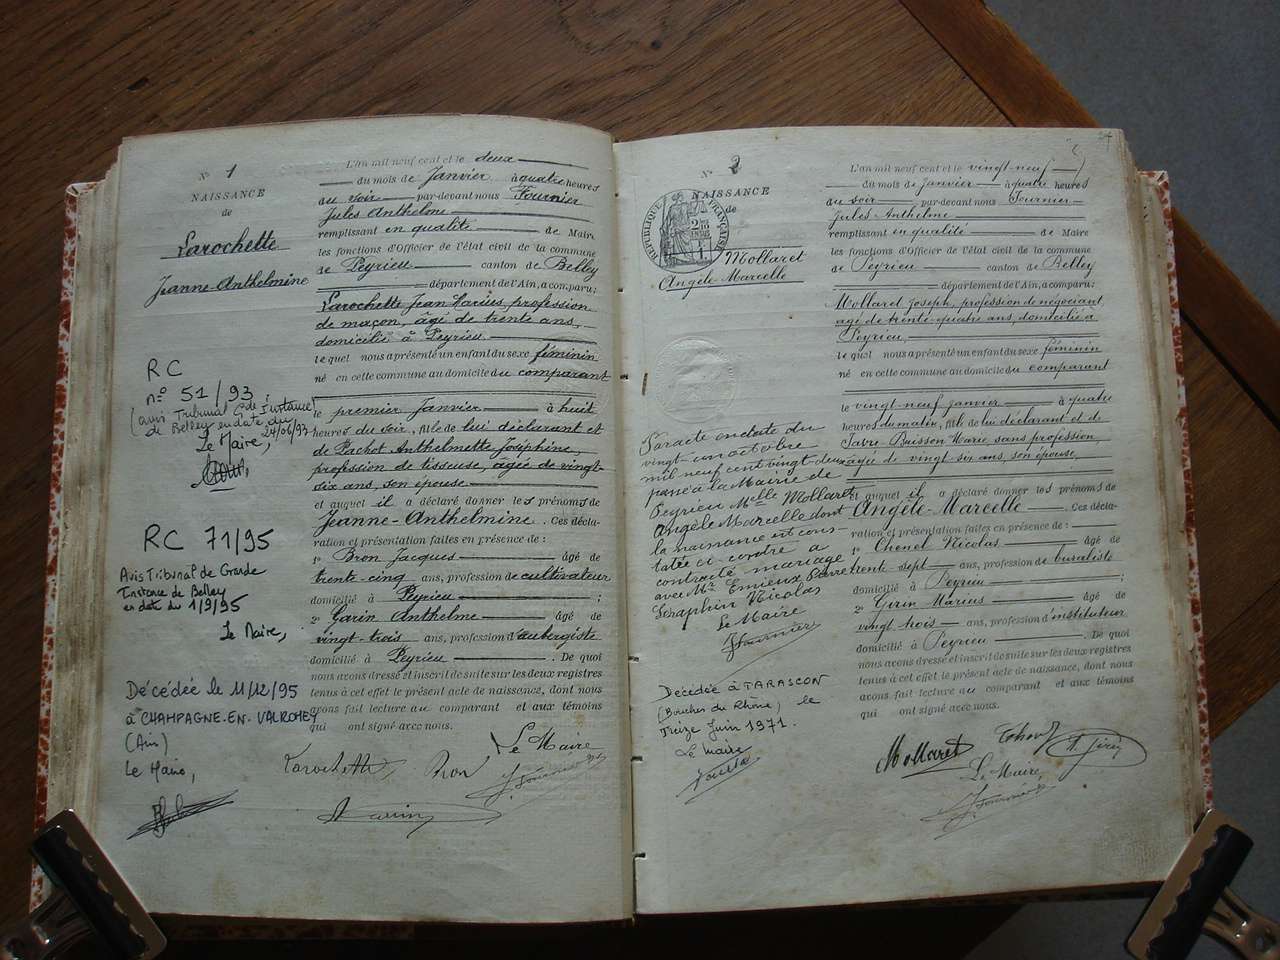 N° 1
NAISSANCE
de
Larochette
Jeanne-Anthelmine
RC
n° 51/93
(avis Tribunal d'Instance
de Belley en date du
24/06/93
Le Maire,
RC 71/95
Avis Tribunal de Grande
Instance de Belley
en date du 1/9/95
Le Maire,
Décédée le 11/12/95
à CHAMPAGNE-EN-VALROMEY
(Ain)
Le Maire,
L'an mil neuf cent et le deux
du mois de Janvier à quatre heures
du soir par-devant nous Fournier
Jules Anthelme
remplissant en qualité de Maire
les fonctions d'Officier de l'état civil de la commune
de Peyrieu canton de Belley
département de l'Ain, a comparu :
Larochette Jean Marius, profession
de maçon, âgé de trente ans,
domicilié à Peyrieu
lequel nous a présenté un enfant du sexe féminin
né en cette commune au domicile du comparant
le premier Janvier à huit
heures du soir, fille de lui déclarant et
de Pachot Anthelmette Joséphine,
profession de tisseuse, âgée de vingt-
six ans, son épouse
et auquel il a déclaré donner les prénoms de
Jeanne-Anthelmine. Ces décla-
ration et présentation faites en présence de :
1° Bron Jacques âgé de
trente-cinq ans, profession de cultivateur
domicilié à Peyrieu ;
2° Garin Anthelme âgé de
vingt-trois ans, profession d'aubergiste
domicilié à Peyrieu. De quoi
nous avons dressé et inscrit de suite sur les deux registres
tenus à cet effet le présent acte de naissance, dont nous
avons fait lecture au comparant et aux témoins
qui ont signé avec nous.
Le Maire
Larochette Bron J. Fournier
Garin
N° 2
NAISSANCE
de
RÉPUBLIQUE FRANÇAISE
Mollaret
Angèle Marcelle
Par acte en date du
vingt-un octobre
mil neuf cent vingt-deux
passé à la Mairie de
Peyrieu Melle Mollaret
Angèle Marcelle dont
la naissance est cons-
tatée ci-contre a
contracté mariage
avec Mr Emieux Pierre
Séraphin Nicolas
Le Maire
J. Fournier
Décédée à TARASCON
(Bouches du Rhône) le
Treize Juin 1971.
Le Maire
L'an mil neuf cent et le vingt-neuf
du mois de janvier à quatre heures
du soir par-devant nous Fournier
Jules-Anthelme
remplissant en qualité de Maire
les fonctions d'Officier de l'état civil de la commune
de Peyrieu canton de Belley
département de l'Ain, a comparu :
Mollaret Joseph, profession de négociant
âgé de trente-quatre ans, domicilié à
Peyrieu,
lequel nous a présenté un enfant du sexe féminin
né en cette commune au domicile du comparant
le vingt-neuf janvier à quatre
heures du matin, fille de lui déclarant et de
Favre-Buisson Marie sans profession,
âgée de vingt-six ans, son épouse,
et auquel il a déclaré donner les prénoms de
Angèle-Marcelle. Ces décla-
ration et présentation faites en présence de :
1° Chenel Nicolas âgé de
trente-sept ans, profession de buraliste
domicilié à Peyrieu ;
2° Girin Marius âgé de
vingt-trois ans, profession d'instituteur
domicilié à Peyrieu. De quoi
nous avons dressé et inscrit de suite sur les deux registres
tenus à cet effet le présent acte de naissance, dont nous
avons fait lecture au comparant et aux témoins
qui ont signé avec nous.
Mollaret M. Girin
Le Maire,
J. Fournier